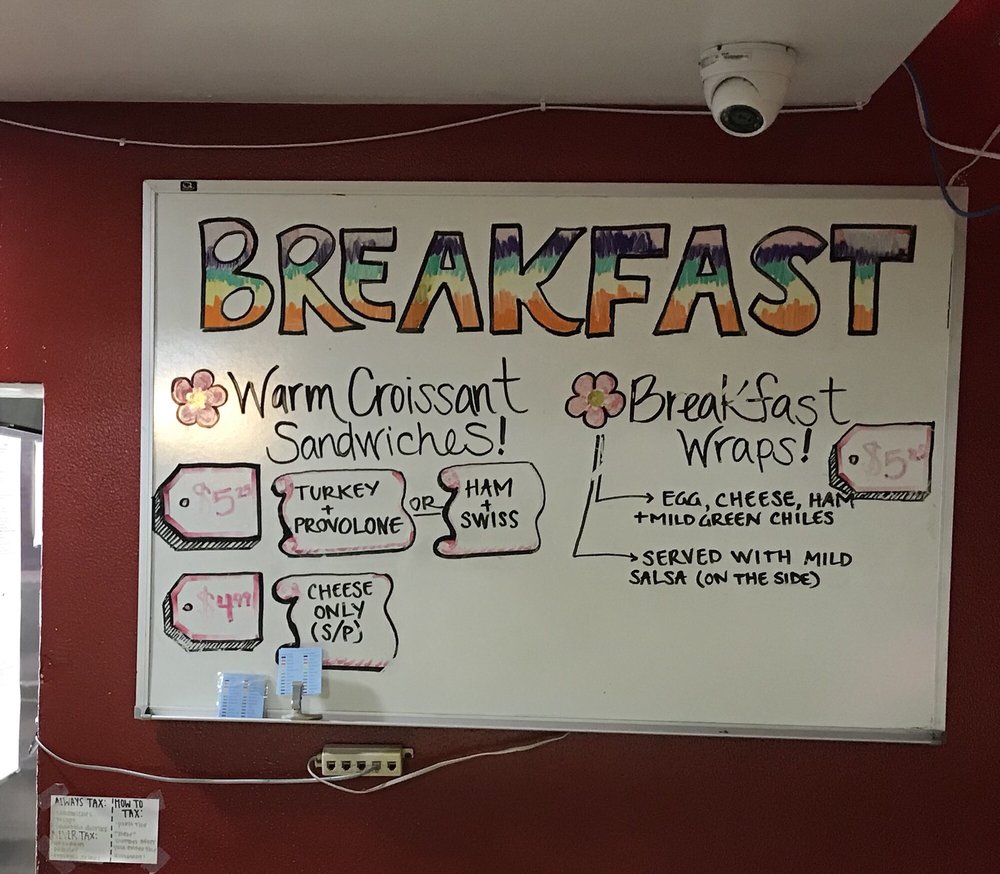 BREAKFAST
Warm Croissant
Sandwiches!
$5.25
TURKEY
+
PROVOLONE
OR
HAM
+
SWISS
$4.99
CHEESE
ONLY
(S/P)
Breakfast
Wraps!
EGG, CHEESE, HAM
+ MILD GREEN CHILES
SERVED WITH MILD
SALSA (ON THE SIDE)
ALWAYS TAX:
TAX:
HOW TO
TAX: